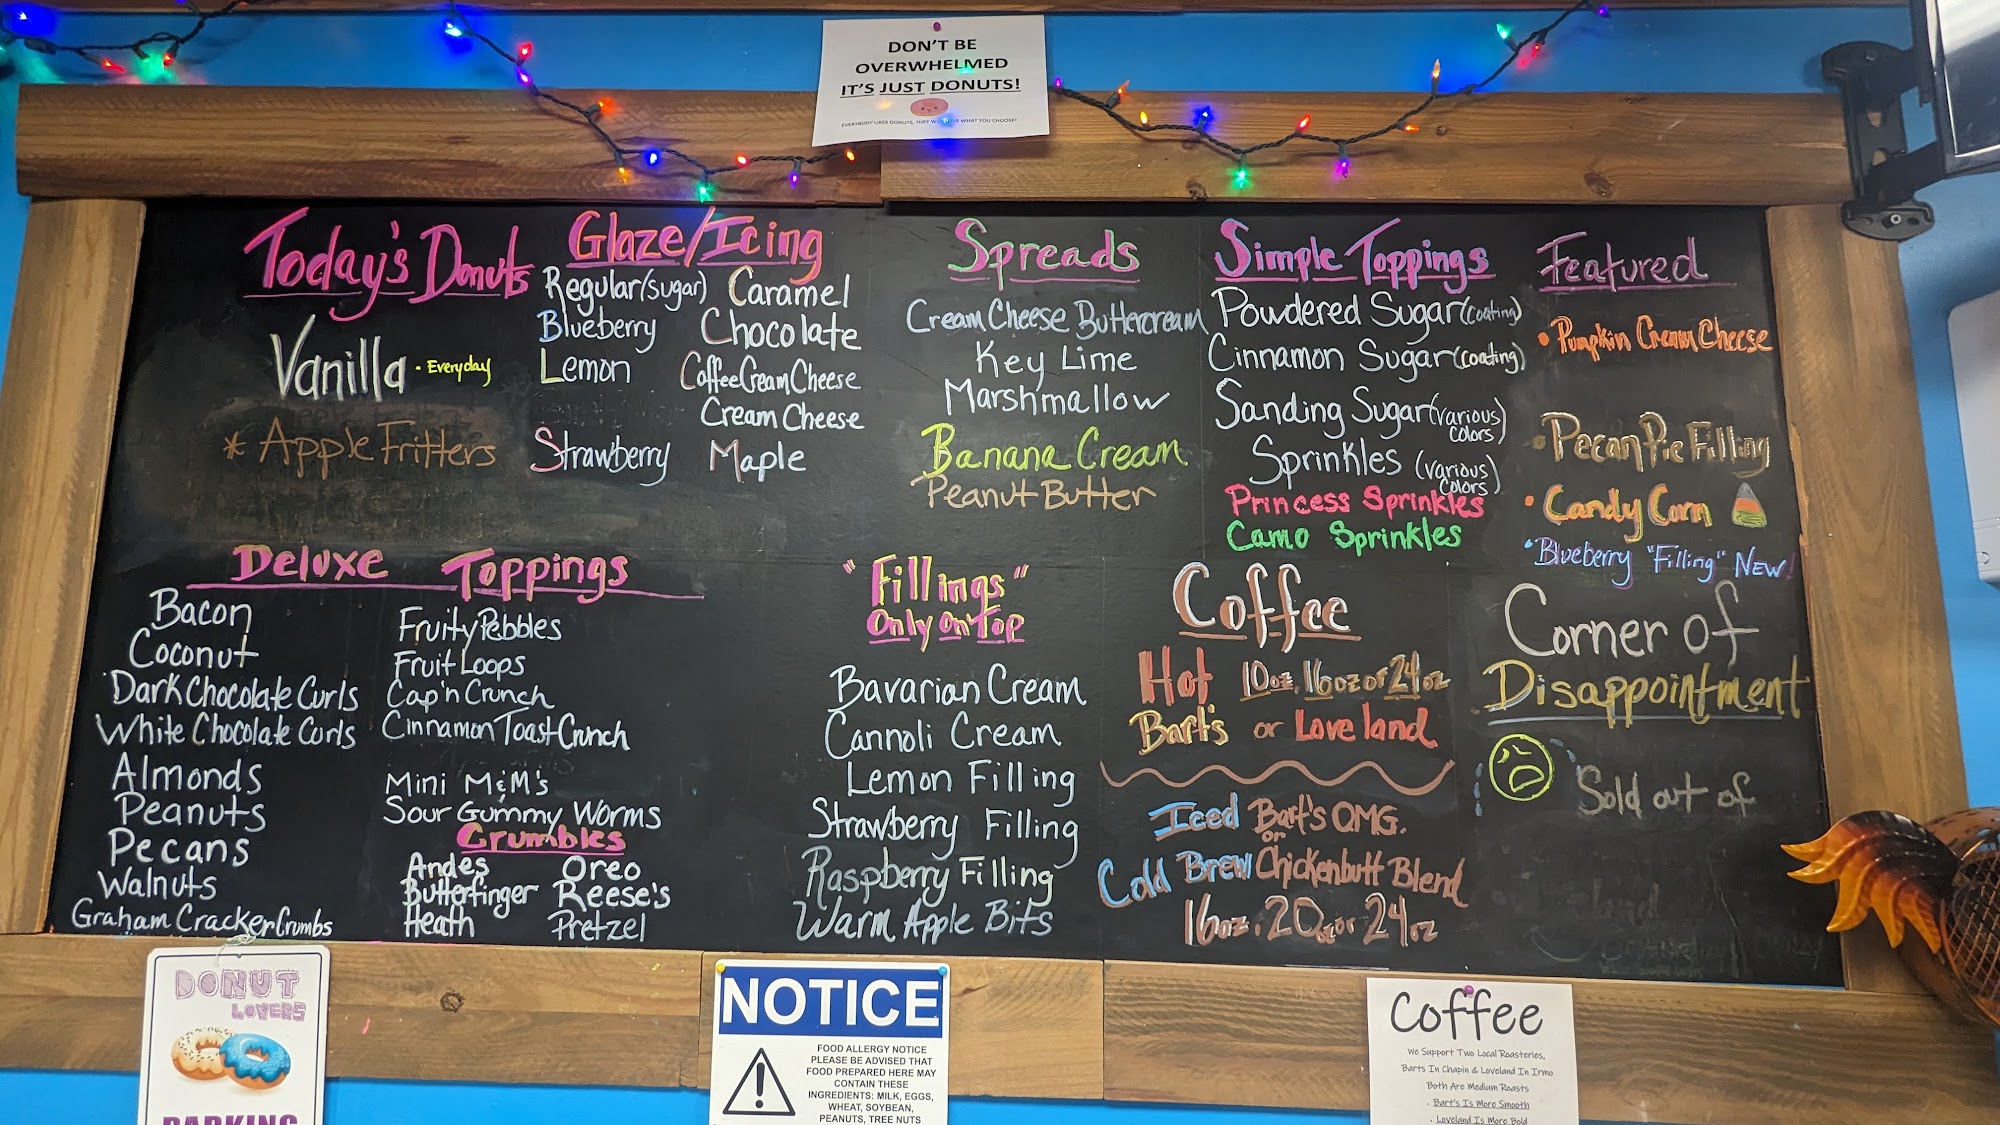 DON'T BE
OVERWHELMED
IT'S JUST DONUTS!
EVERYBODY LIKES DONUTS, THEY WHAT YOU CHOOSE!
Today's Donuts
Vanilla • Everyday
* Apple Fritters
Glaze/Icing
Regular (sugar) Caramel
Blueberry Chocolate
Lemon Coffee Cream Cheese
Cream Cheese
Strawberry Maple
Spreads
Cream Cheese Buttercream
Key Lime
Marshmallow
Banana Cream
Peanut Butter
Simple Toppings
Powdered Sugar (coating)
Cinnamon Sugar (coating)
Sanding Sugar (various
colors)
Sprinkles (various
colors)
Princess Sprinkles
Camo Sprinkles
Featured
• Pumpkin Cream Cheese
• Pecan Pie Filling
• Candy Corn
• Blueberry "Filling" New!
Deluxe Toppings
Bacon
Coconut
Dark Chocolate Curls
White Chocolate Curls
Almonds
Peanuts
Pecans
Walnuts
Graham Cracker Crumbs
Fruity Pebbles
Fruit Loops
Cap'n Crunch
Cinnamon Toast Crunch
Mini M&M's
Sour Gummy Worms
Crumbles
Andes Oreo
Butterfinger Reese's
Heath Pretzel
"Fillings"
Only on Top
Bavarian Cream
Cannoli Cream
Lemon Filling
Strawberry Filling
Raspberry Filling
Warm Apple Bits
Coffee
Hot 10oz, 16oz or 24oz
Bart's or Loveland
Iced Bart's OMG.
or
Cold Brew Chickenbutt Blend
16oz, 20oz or 24oz
Corner of
Disappointment
Sold out of
DONUT
LOVERS
PARKING
NOTICE
FOOD ALLERGY NOTICE
PLEASE BE ADVISED THAT
FOOD PREPARED HERE MAY
CONTAIN THESE
INGREDIENTS: MILK, EGGS,
WHEAT, SOYBEAN,
PEANUTS, TREE NUTS
Coffee
We Support Two Local Roasteries,
Barts In Chapin & Loveland In Irmo
Both Are Medium Roasts
. Bart's Is More Smooth
. Loveland Is More Bold